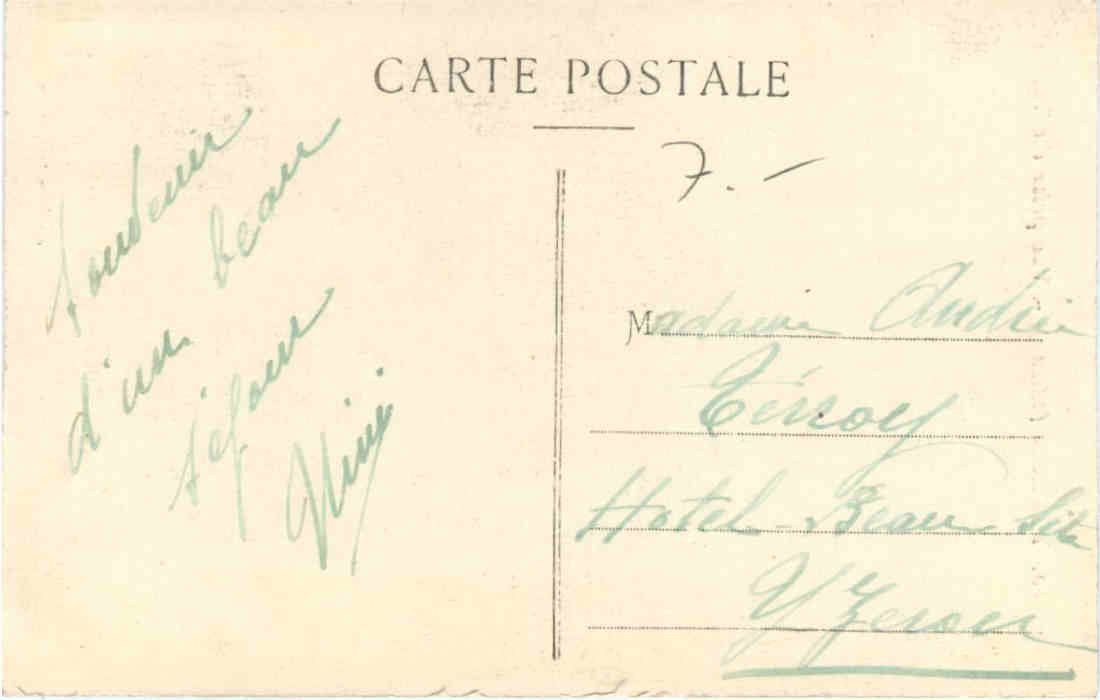 CARTE POSTALE
7.-
Souvenir
d'un beau
séjour
Mimi
Madame Andrée
Hotel-Beau Site
Yzeron